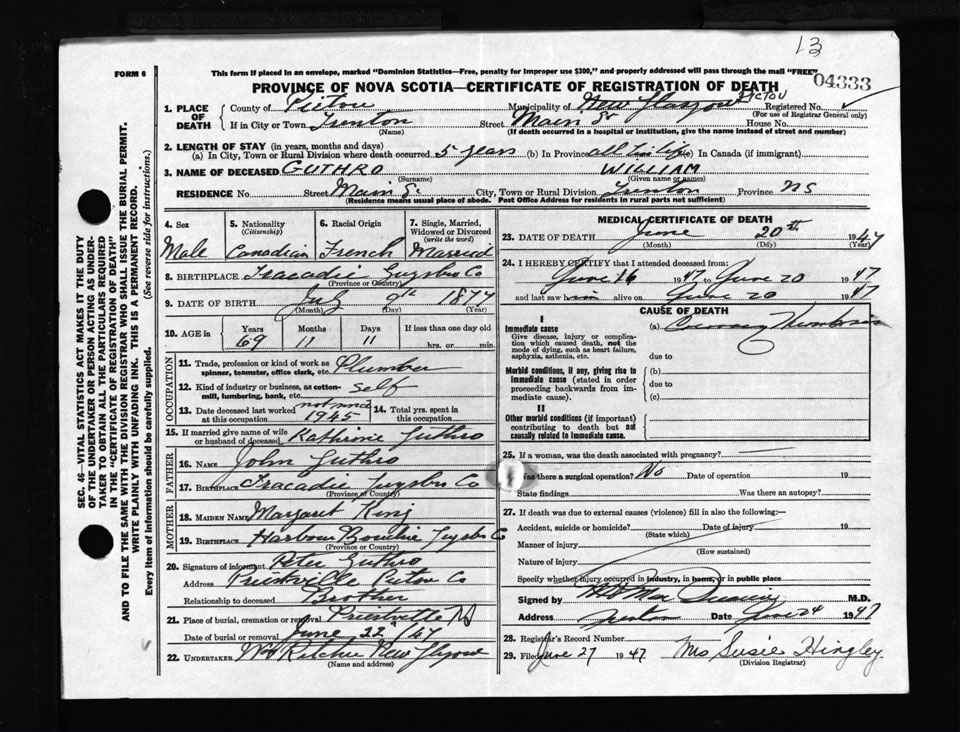 13
FORM 6
This form if placed in an envelope, marked "Dominion Statistics—Free, penalty for improper use $300," and properly addressed will pass through the mail "FREE"
04333
PROVINCE OF NOVA SCOTIA—CERTIFICATE OF REGISTRATION OF DEATH
SEC. 46—VITAL STATISTICS ACT MAKES IT THE DUTY
OF THE UNDERTAKER OR PERSON ACTING AS UNDER-
TAKER TO OBTAIN ALL THE PARTICULARS REQUIRED
IN THE "CERTIFICATE OF REGISTRATION OF DEATH"
AND TO FILE THE SAME WITH THE DIVISION REGISTRAR WHO SHALL ISSUE THE BURIAL PERMIT.
WRITE PLAINLY WITH UNFADING INK. THIS IS A PERMANENT RECORD.
Every item of information should be carefully supplied. (See reverse side for instructions.)
1. PLACE OF DEATH
County of Pictou Municipality of New Glasgow PICTOU Registered No.
(For use of Registrar General only)
If in City or Town Trenton Street Main St House No.
(Name) (If death occurred in a hospital or institution, give the name instead of street and number)
2. LENGTH OF STAY (in years, months and days)
(a) In City, Town or Rural Division where death occurred 5 years (b) In Province all his life (c) In Canada (if immigrant)
3. NAME OF DECEASED GUTHRO WILLIAM
(Surname) (Given name or names)
RESIDENCE No. Street Main St. City, Town or Rural Division Trenton Province NS
(Residence means usual place of abode. Post Office Address for residents in rural parts not sufficient)
4. Sex
Male
5. Nationality
(Citizenship)
Canadian
6. Racial Origin
French
7. Single, Married,
Widowed or Divorced
(write the word)
Married
8. BIRTHPLACE Tracadie Guysbro Co
(Province or Country)
9. DATE OF BIRTH July 9th 1877
(Month) (Day) (Year)
10. AGE in Years Months Days If less than one day old
69 11 11 hrs. or min.
OCCUPATION
11. Trade, profession or kind of work as
spinner, teamster, office clerk, etc. Plumber
12. Kind of industry or business, as cotton-
mill, lumbering, bank, etc. Self
13. Date deceased last worked
at this occupation not since 1945
14. Total yrs. spent in
this occupation
15. If married give name of wife
or husband of deceased Kathrine Guthro
FATHER
16. NAME John Guthro
17. BIRTHPLACE Tracadie Guysbro Co
(Province or Country)
MOTHER
18. MAIDEN NAME Margaret King
19. BIRTHPLACE Harbour Bouchie Guysbro Co
(Province or Country)
20. Signature of informant Peter Guthro
Address Priestville Pictou Co
Relationship to deceased Brother
21. Place of burial, cremation or removal Priestville NS
Date of burial or removal June 22 /47
22. UNDERTAKER Wm Ritchie New Glasgow
(Name and address)
MEDICAL CERTIFICATE OF DEATH
23. DATE OF DEATH June 20th 1947
(Month) (Day) (Year)
24. I HEREBY CERTIFY that I attended deceased from:
June 16 1947 to June 20 1947
and last saw him alive on June 20 1947
CAUSE OF DEATH
I
Immediate cause
Give disease, injury or complica-
tion which caused death, not the
mode of dying, such as heart failure,
asphyxia, asthenia, etc.
(a) Coronary Thrombosis
due to
Morbid conditions, if any, giving rise to
immediate cause (stated in order
proceeding backwards from im-
mediate cause).
(b)
due to
(c)
II
Other morbid conditions (if important)
contributing to death but not
causally related to immediate cause.
25. If a woman, was the death associated with pregnancy?
Was there a surgical operation? No Date of operation 19
State findings Was there an autopsy?
27. If death was due to external causes (violence) fill in also the following:—
Accident, suicide or homicide? Date of injury 19
(State which)
Manner of injury
(How sustained)
Nature of injury
Specify whether injury occurred in industry, in home, or in public place
Signed by M.D.
Address Trenton Date June 24 1947
28. Registrar's Record Number
29. Filed June 27 1947 Mrs Susie Hingley
(Division Registrar)